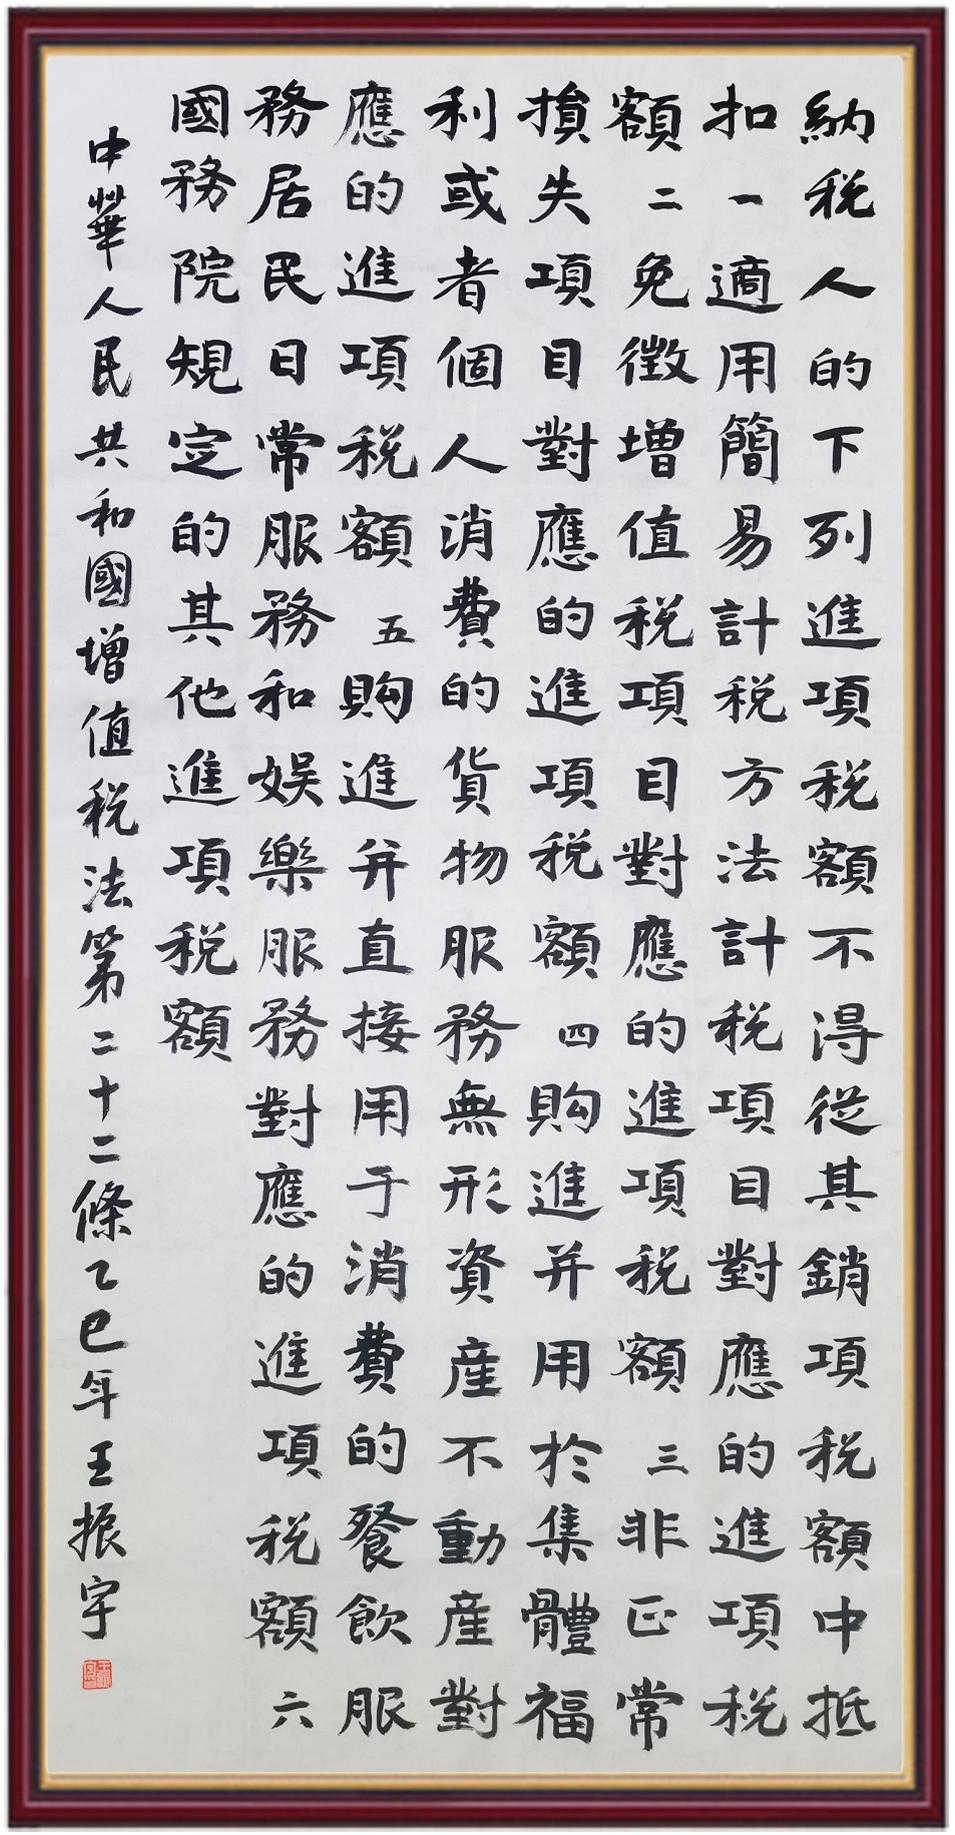 納税人的下列進項税額不得從其銷項税額中抵
扣一適用簡易計税方法計税項目對應的進項税
額二免徵增值税項目對應的進項税額三非正常
損失項目對應的進項税額四購進并用於集體福
利或者個人消費的貨物服務無形資産不動産對
應的進項税額五購進并直接用于消費的餐飲服
務居民日常服務和娱樂服務對應的進項税額六
國務院規定的其他進項税額
中華人民共和國增值税法第二十二條乙巳年王振宇